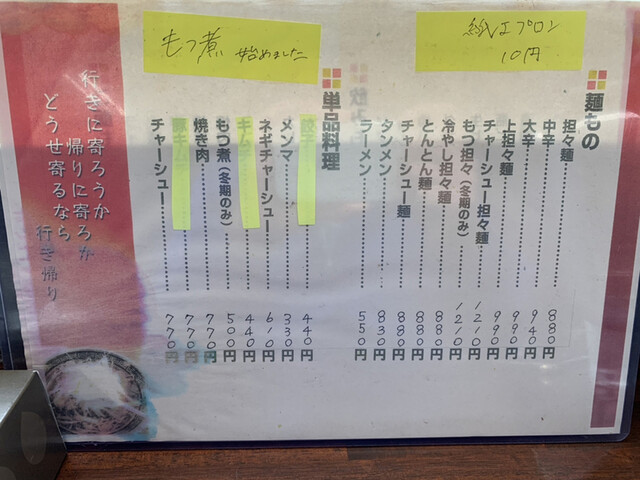 紙エプロン
10円
もつ煮 始めました
麺もの
担々麺 880円
中辛 940円
大辛 990円
上担々麺 990円
チャーシュー担々麺 1210円
もつ担々(冬期のみ) 1210円
冷やし担々麺 880円
とんとん麺 880円
チャーシュー麺 880円
タンメン 830円
ラーメン 550円
単品料理
餃子 440円
メンマ 330円
ネギチャーシュー 610円
キムチ 440円
もつ煮(冬期のみ) 500円
焼き肉 770円
豚キムチ 770円
チャーシュー 770円
行きに寄ろうか
帰りに寄ろか
どうせ寄るなら
行き帰り